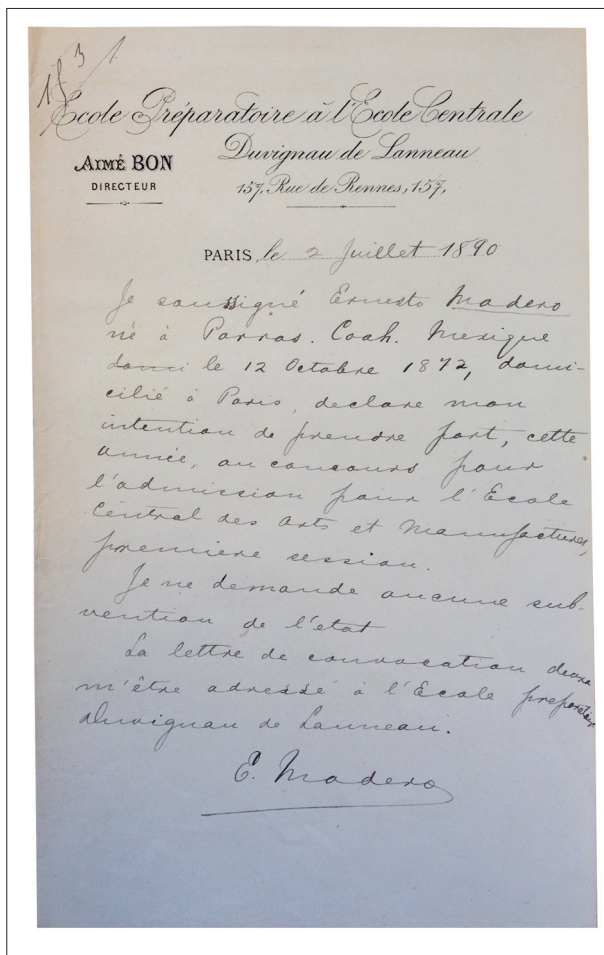 Ecole Préparatoire à l'Ecole Centrale
Duvignau de Lanneau
AIMÉ BON
DIRECTEUR
157, Rue de Rennes, 157,
PARIS, le 2 Juillet 1890
Je soussigné Ernesto Madero
né à Parras. Coah. Mexique
domi le 12 Octobre 1872, domi-
cilié à Paris, declare mon
intention de prendre part, cette
année, au concours pour
l'admission pour l'Ecole
Central des Arts et Manufactures,
première session.
Je ne demande aucune sub-
vention de l'etat
La lettre de convocation devra
m'être adressé à l'Ecole preparatoire
Duvignau de Lanneau.
E. Madero